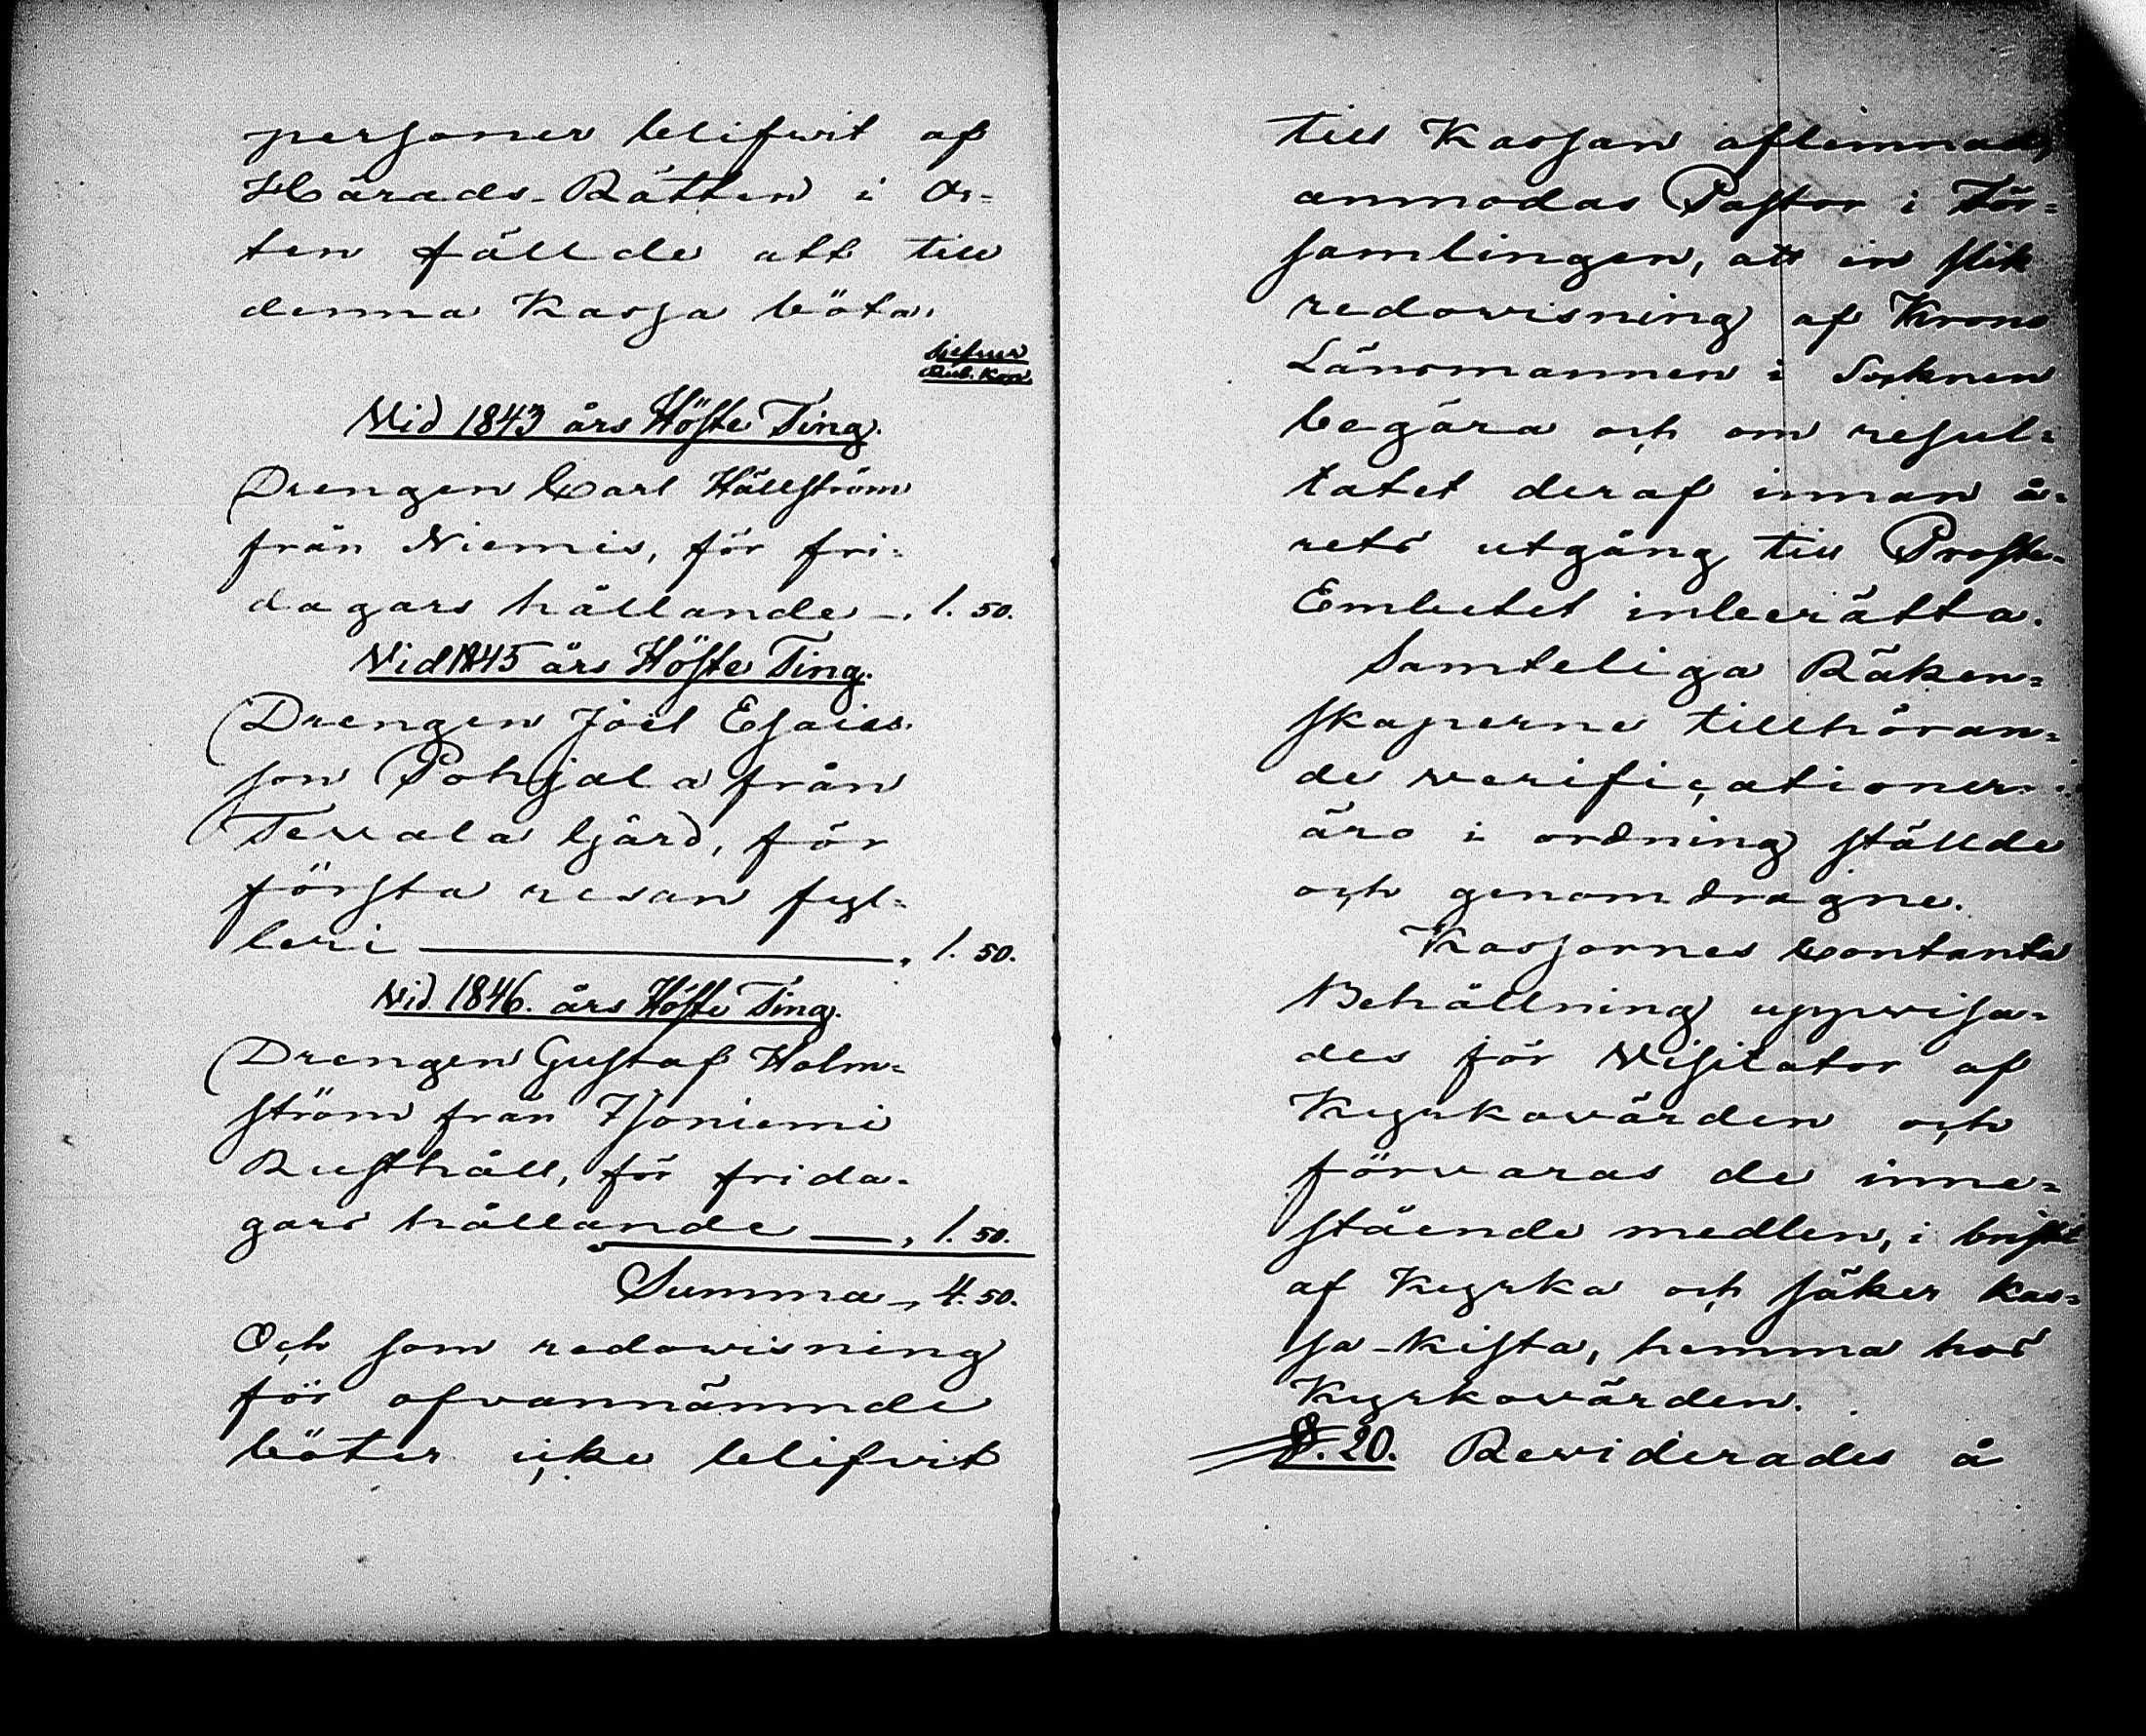 personer blifwit af
Härads-Rätten i Or=
ten fällde att till
denna Kassa böta.
Silfwer
Rub. Kop.
Wid 1843 års Höste Ting.
Drengen Carl Hällström
från Niemis, för fri=
dagars hållande —. 1. 50.
Wid 1845 års Höste Ting.
Drengen Joel Esaias=
son Pohjala från
Tervala Gård, för
första resan fyl=
leri — . 1. 50.
Wid 1846. års Höste Ting.
Drengen Gustaf Holm=
ström från Isoniemi
Rusthåll, för frida=
gars hållande — , 1. 50.
Summa —, 4. 50.
Och som redowisning
för ofvannämnde
böter icke blifvit
till Kassan aflemnad,
anmodas Pastor i För=
samlingen, att en slik
redowisning af Krono
Länsmannen i Socknen
begära och om resul=
tatet deraf innan å=
rets utgång till Prosts-
Embetet inberätta.
Samteliga Räken=
skaperne tillhöran=
de verificationer
äro i ordning ställde
och genomdragne.
Kassornes Contanta
Behållning uppwisa=
des för Visitator af
Kyrkovärden och
förvaras de inne=
stående medlen, i brist
af Kyrka och säker kas=
sa-kista, hemma hos
Kyrkovärden.
§. 20. Reviderades å